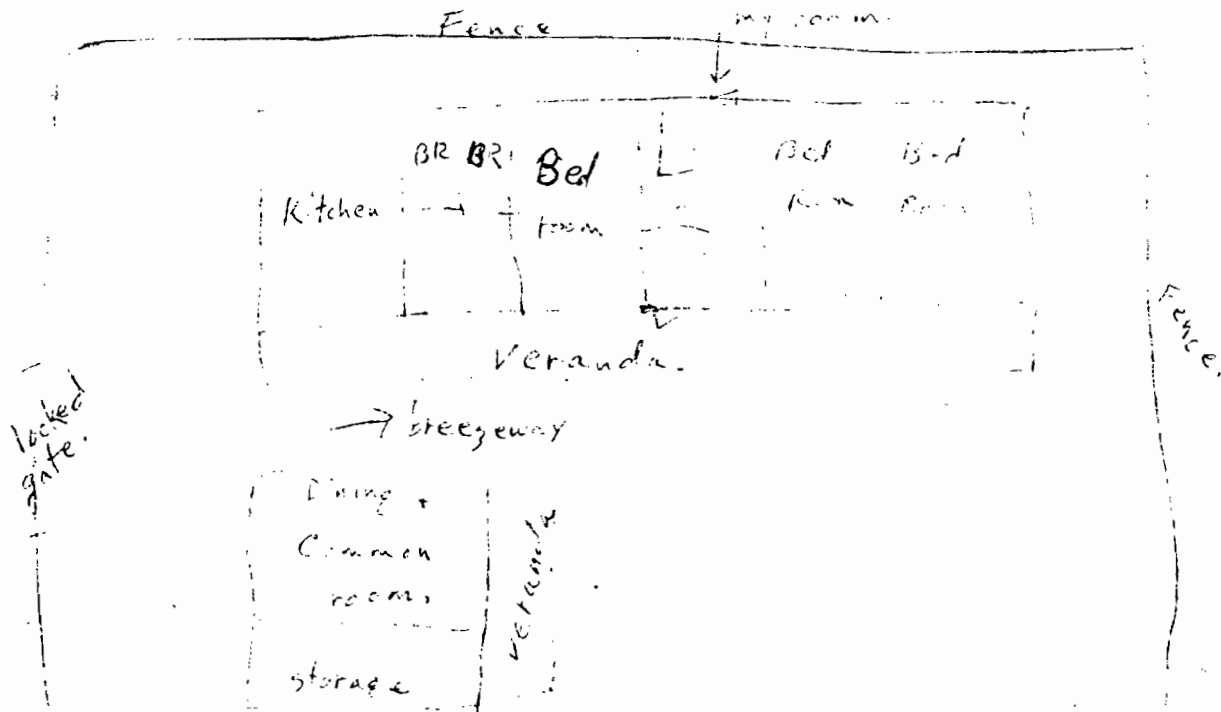 Fence
my room.
BR BR Bed
room
Kitchen
Bed
Room
Bed
Room
Veranda.
Fence.
locked
gate.
→ breezeway
Dining +
Common
rooms
veranda
storage